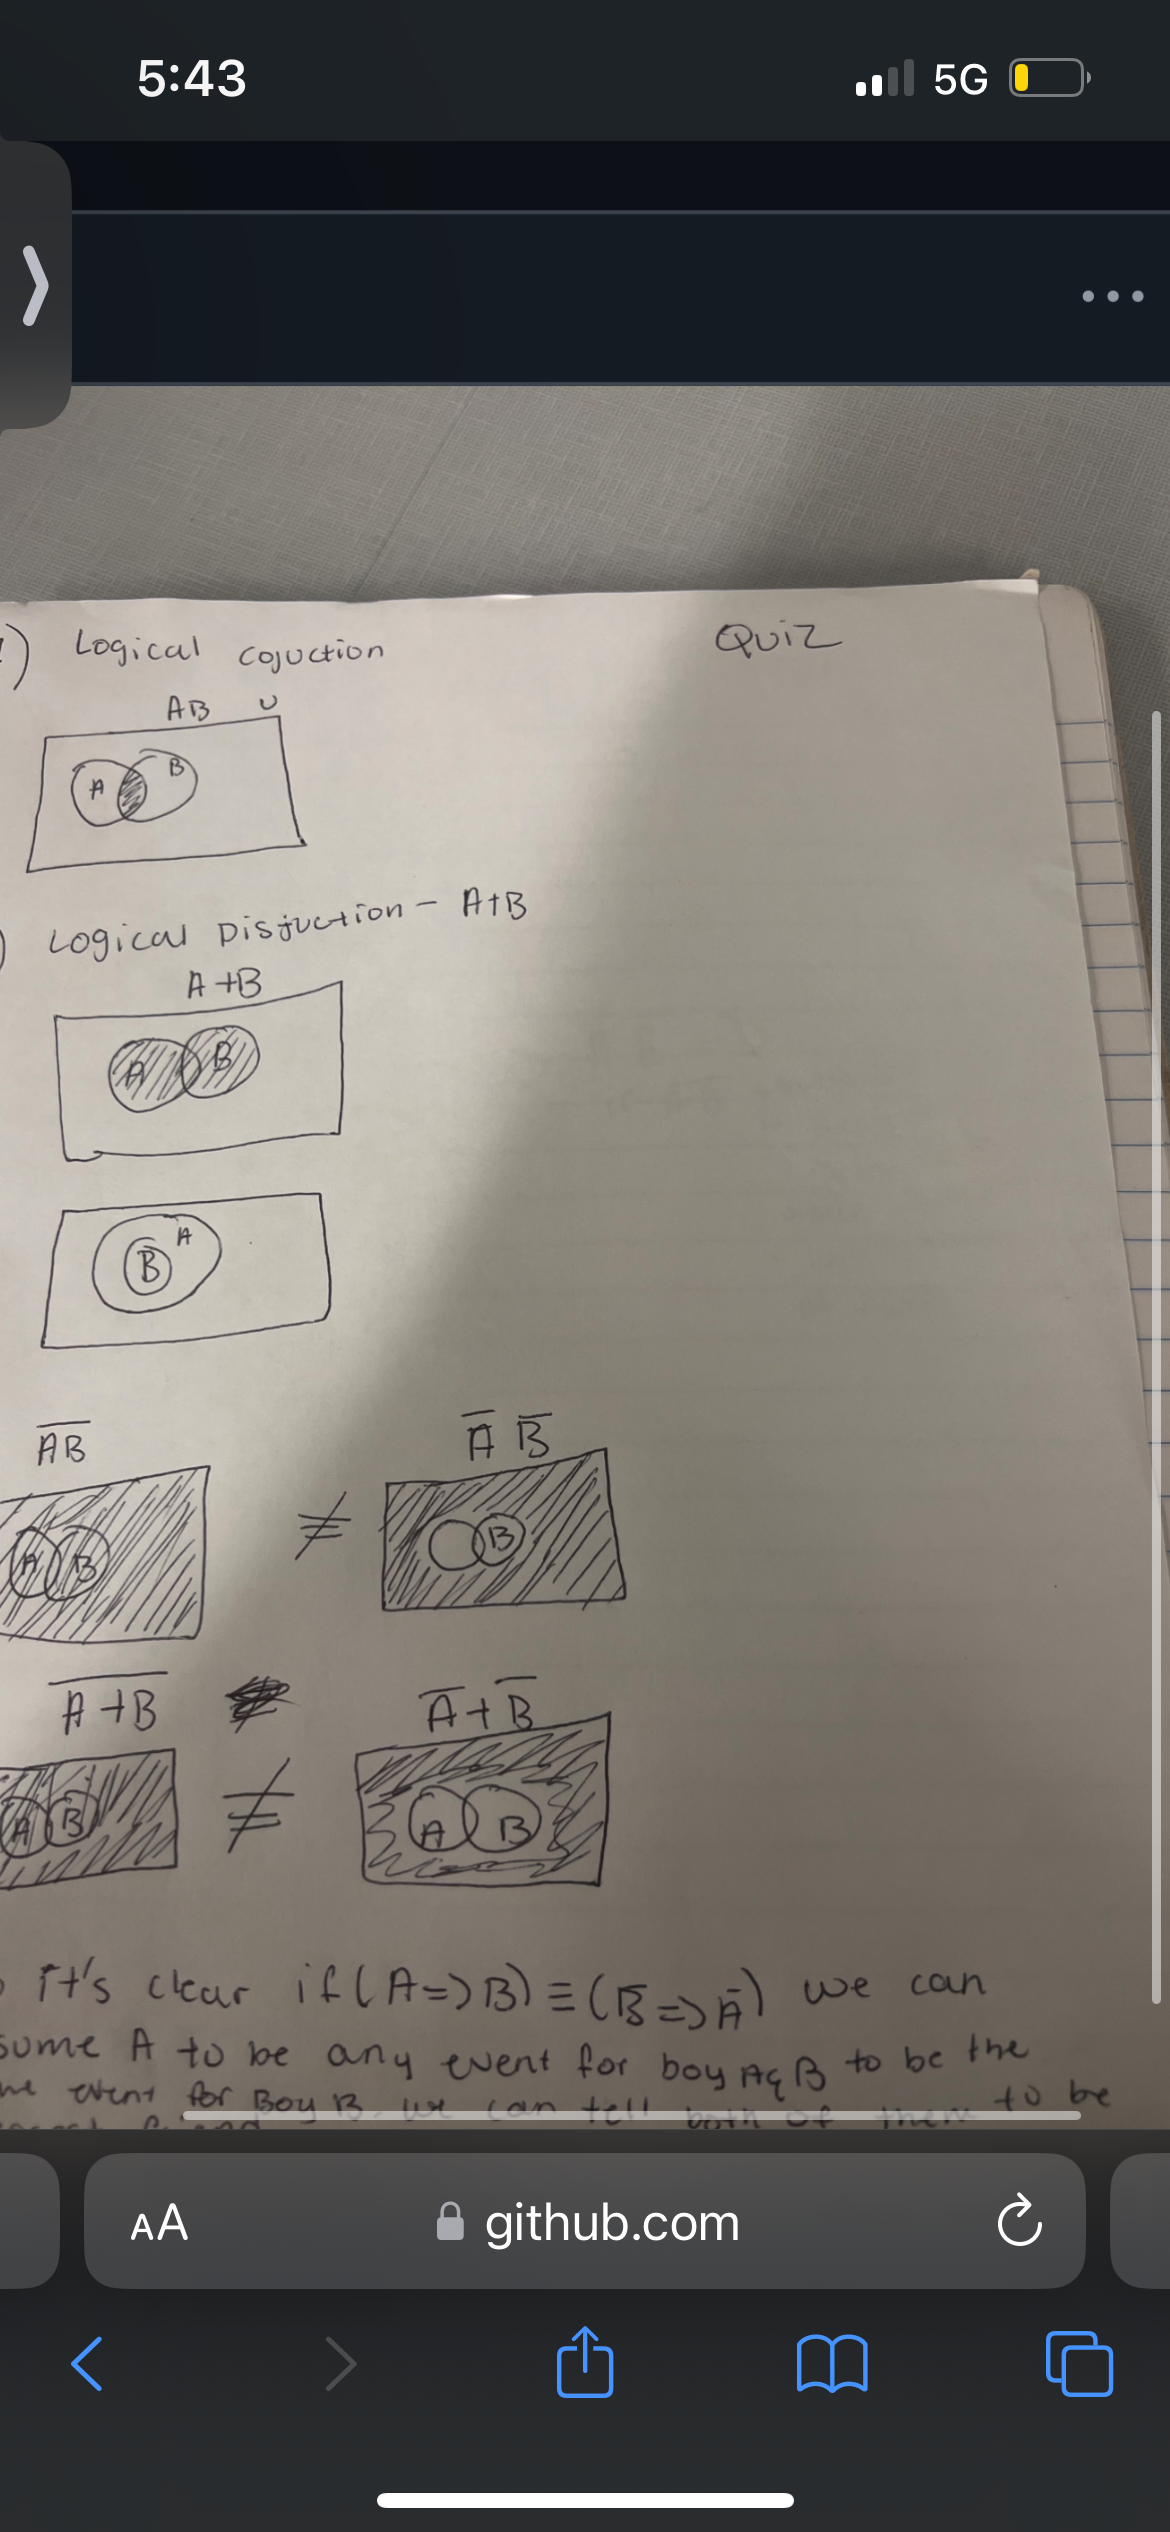 5:43
5G
Logical cojuction
Quiz
AB U
A B
Logical Disjuction - A+B
A+B
A B
A
B
A̅B̅ A̅ B̅
A B ≠ B
A̅+̅B̅ A̅+B̅
A B ≠ A B
it's clear if (A=>B) ≡ (B̅=>A̅) we can
sume A to be any event for boy A & B to be the
event for Boy B. we can tell both of them to be
AA github.com